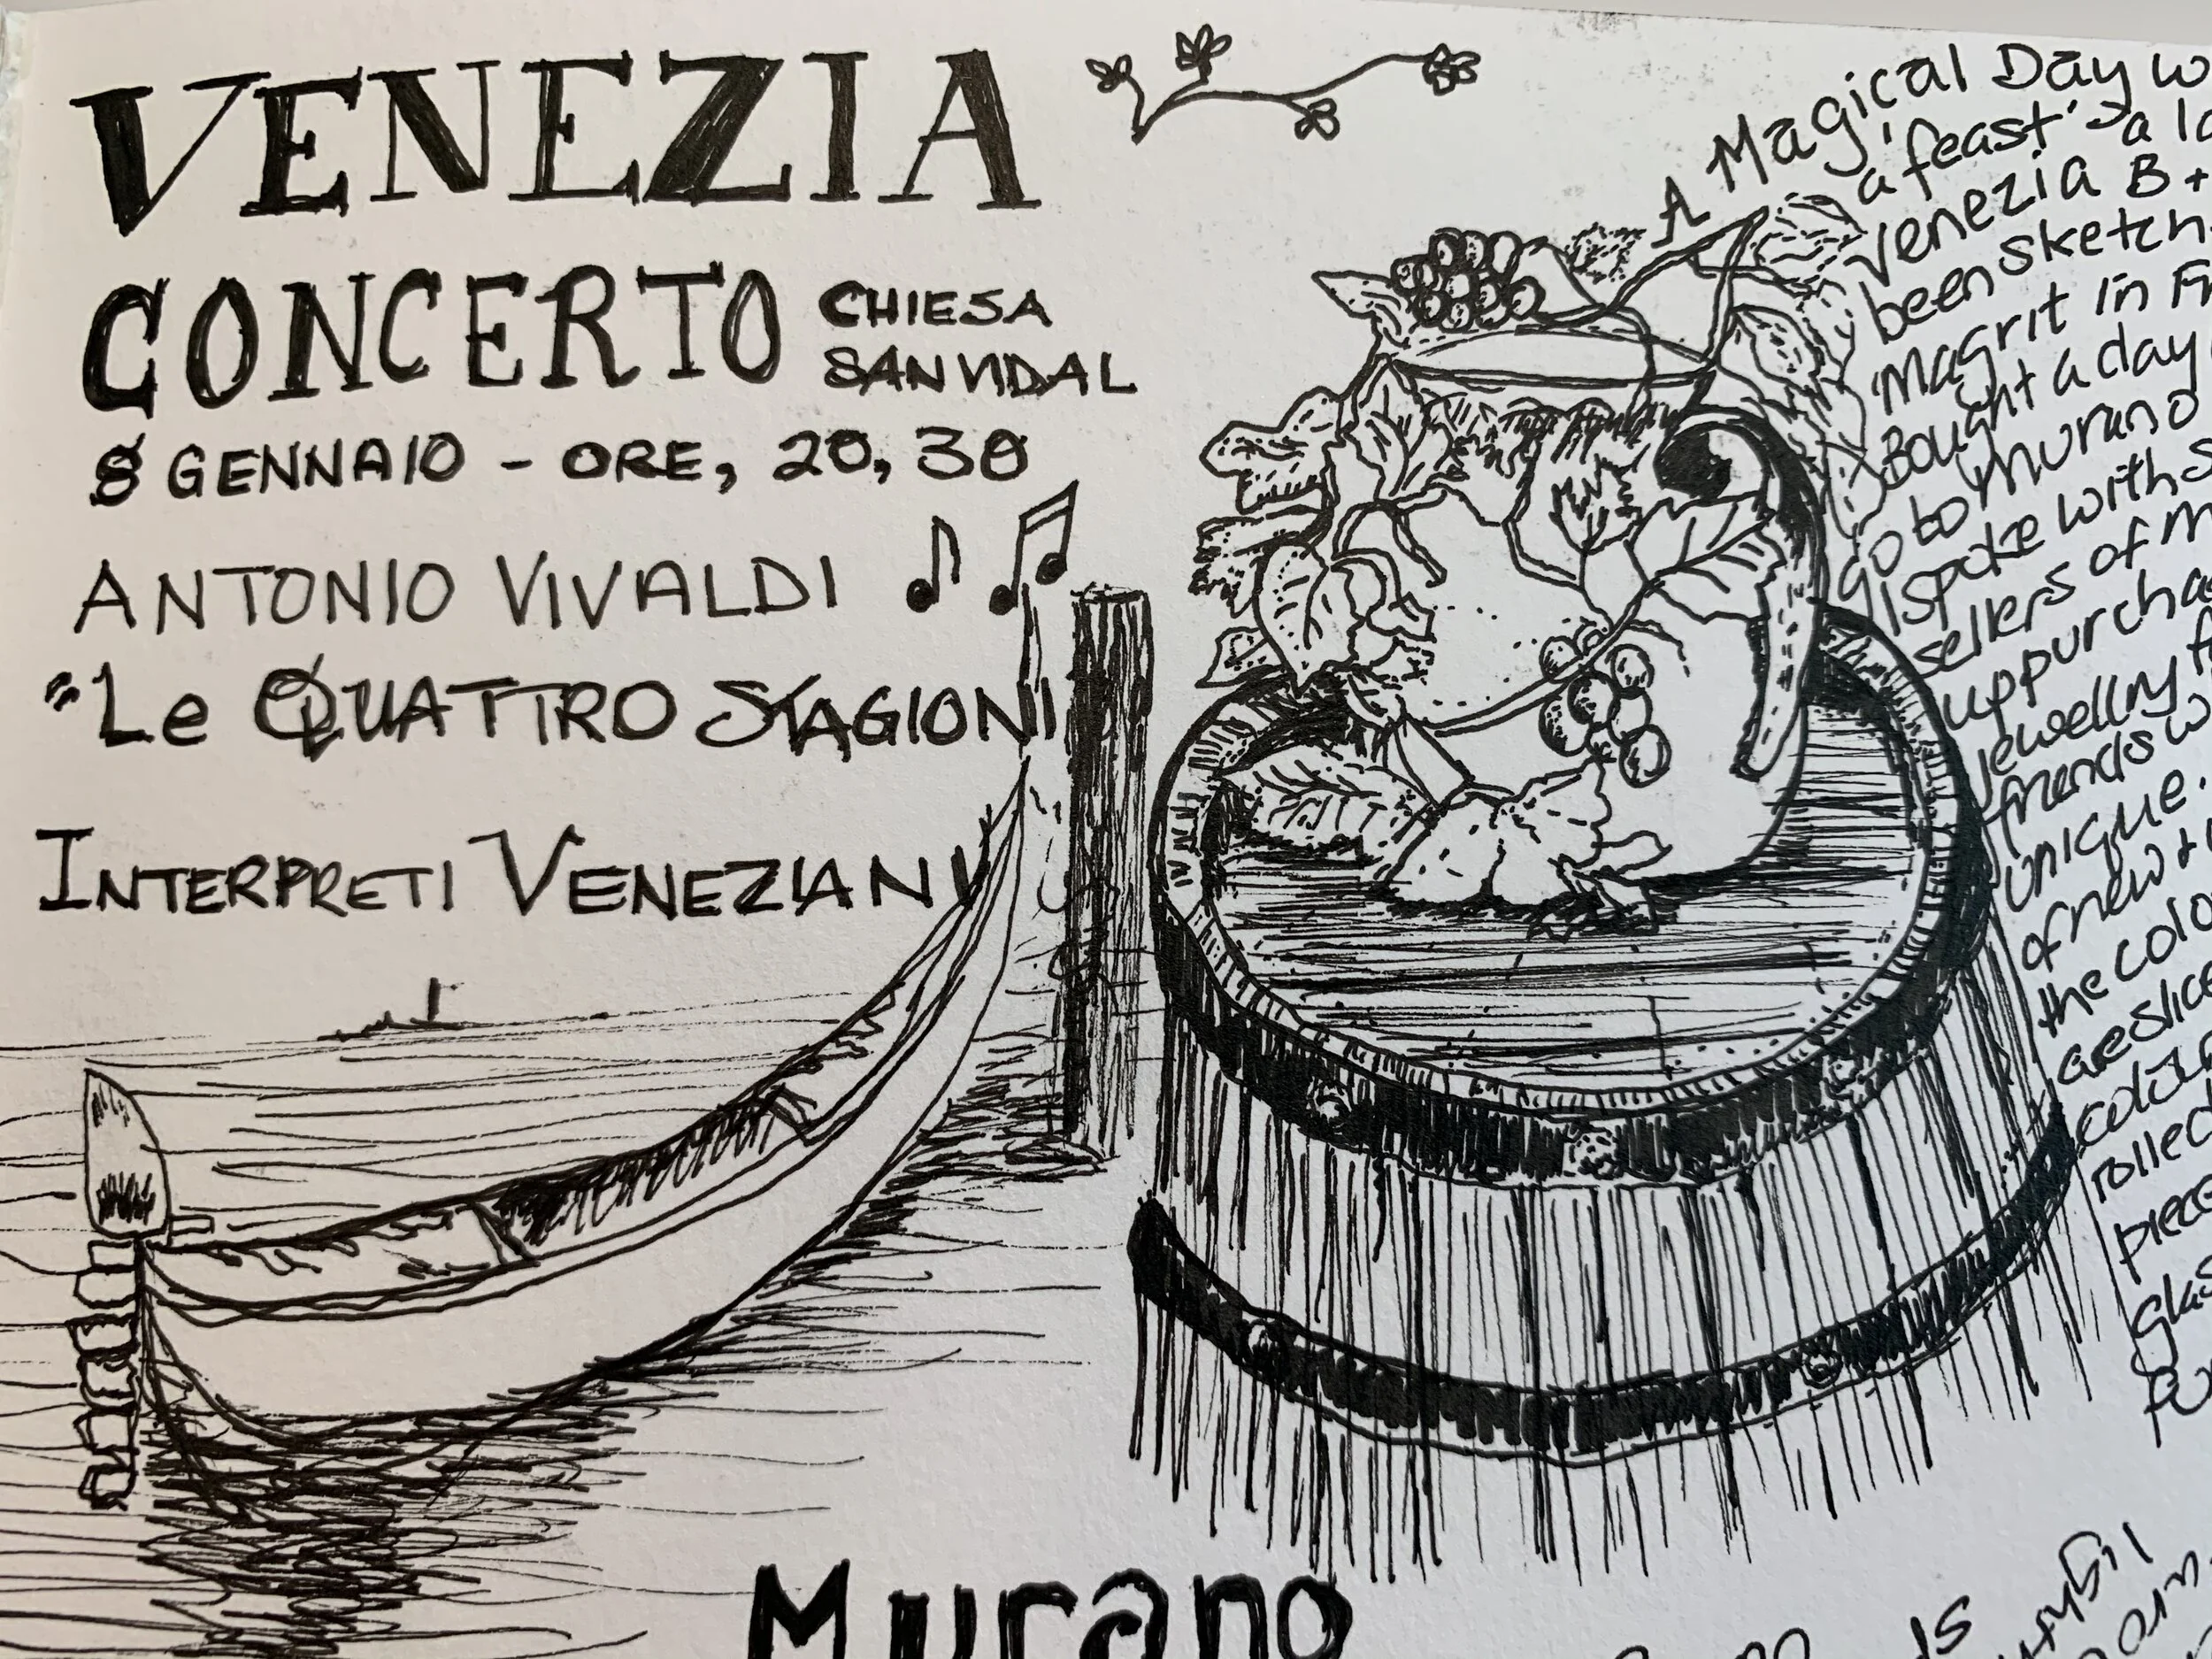 VENEZIA
CONCERTO CHIESA
SAN VIDAL
8 GENNAIO - ORE, 20, 30
ANTONIO VIVALDI
"Le QUATTRO STAGIONI
INTERPRETI VENEZIANI
A Magical Day
'a feast' a la
Venezia B +
been sketch
Magrit in
Bought a day
go to Murano
I spoke with
sellers of
purcha
jewellry
friends
unique.
of new +
the colo
are slice
colour
collec
piece
glas
Murano